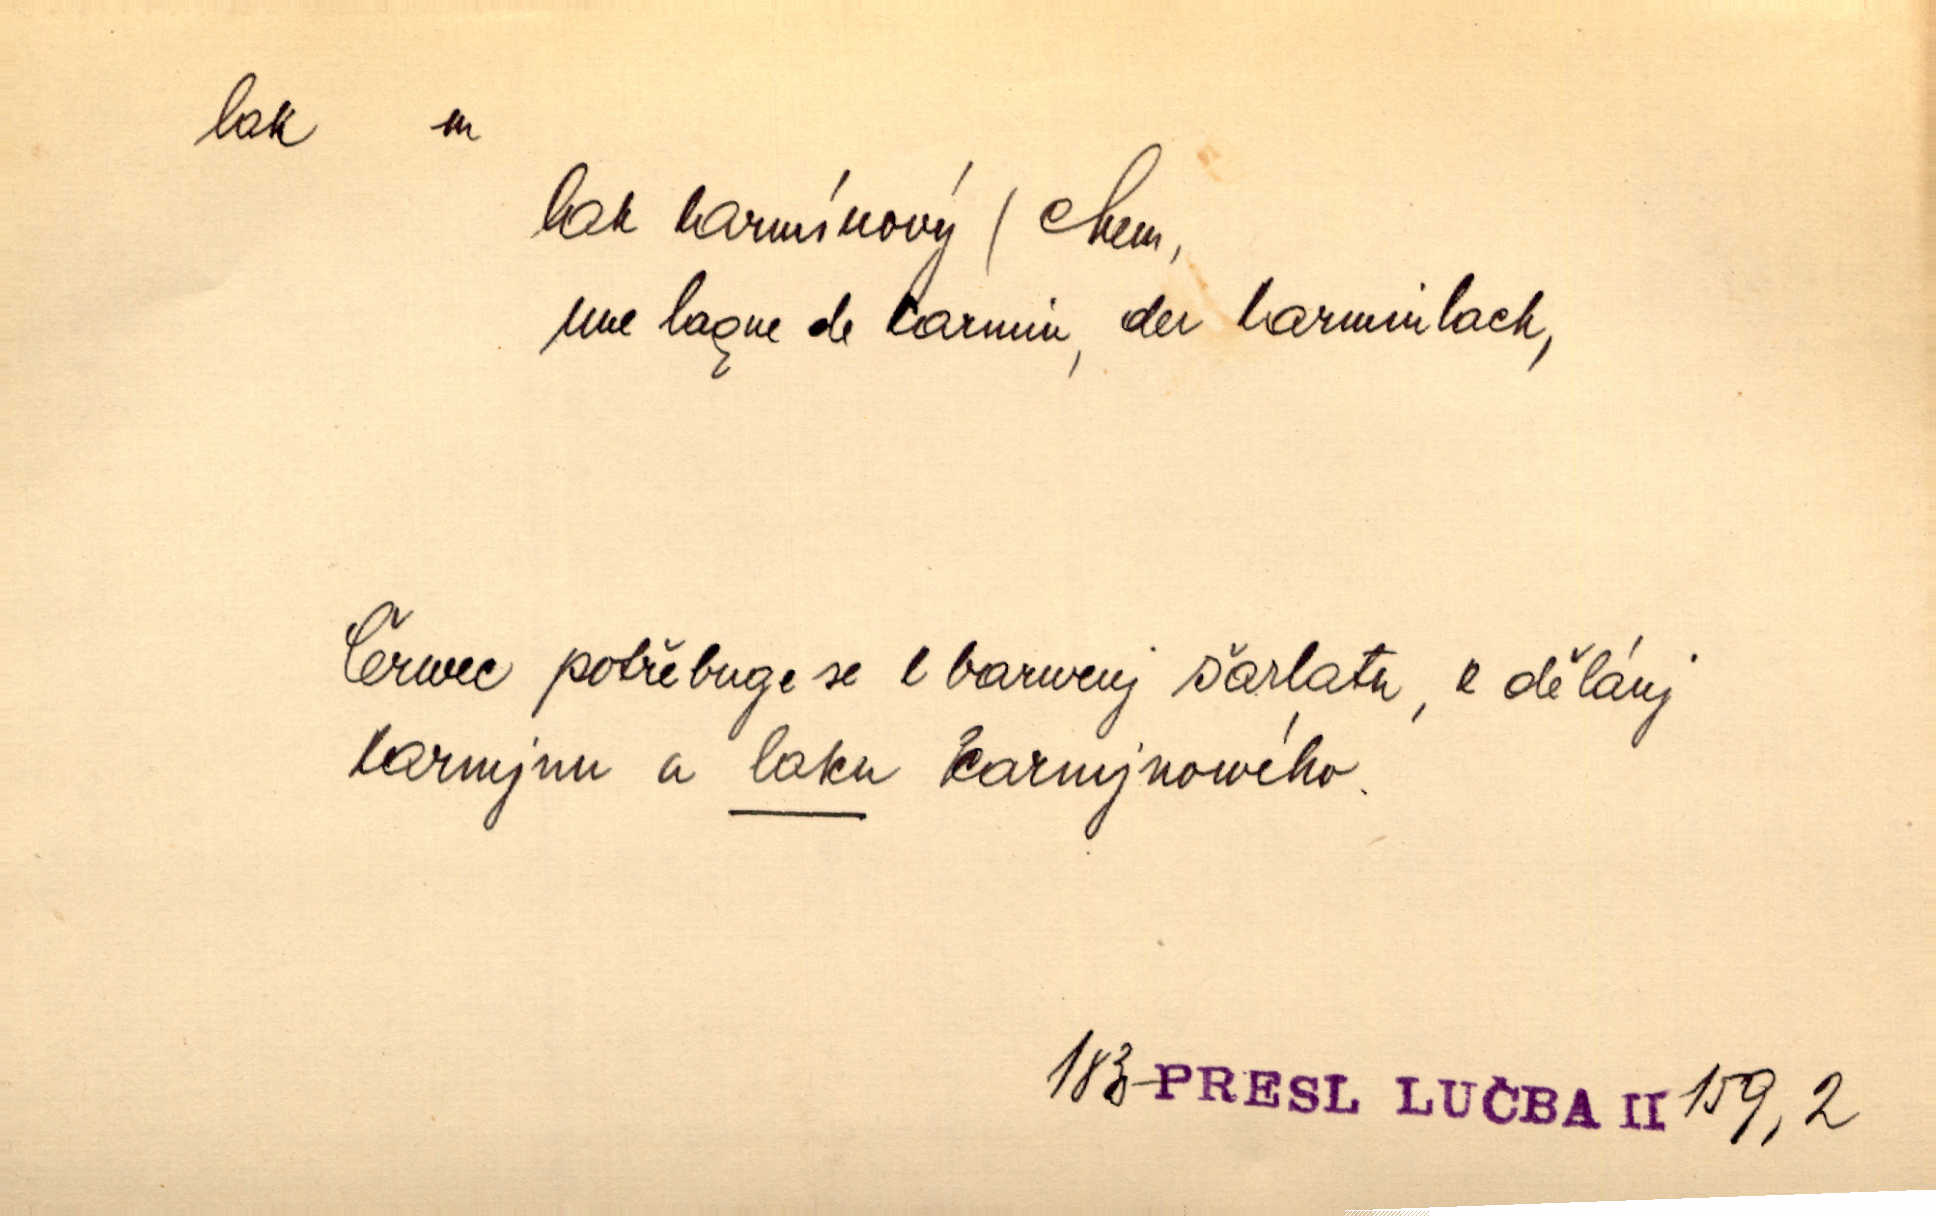 lak m
lak karmínový / chem,
une laque de karmin, der karminlack,
Červec potřebuge se k barwenj šarlatu, k dělánj
karmjnu a laku karmjnowého.
PRESL LUČBA II 159, 2